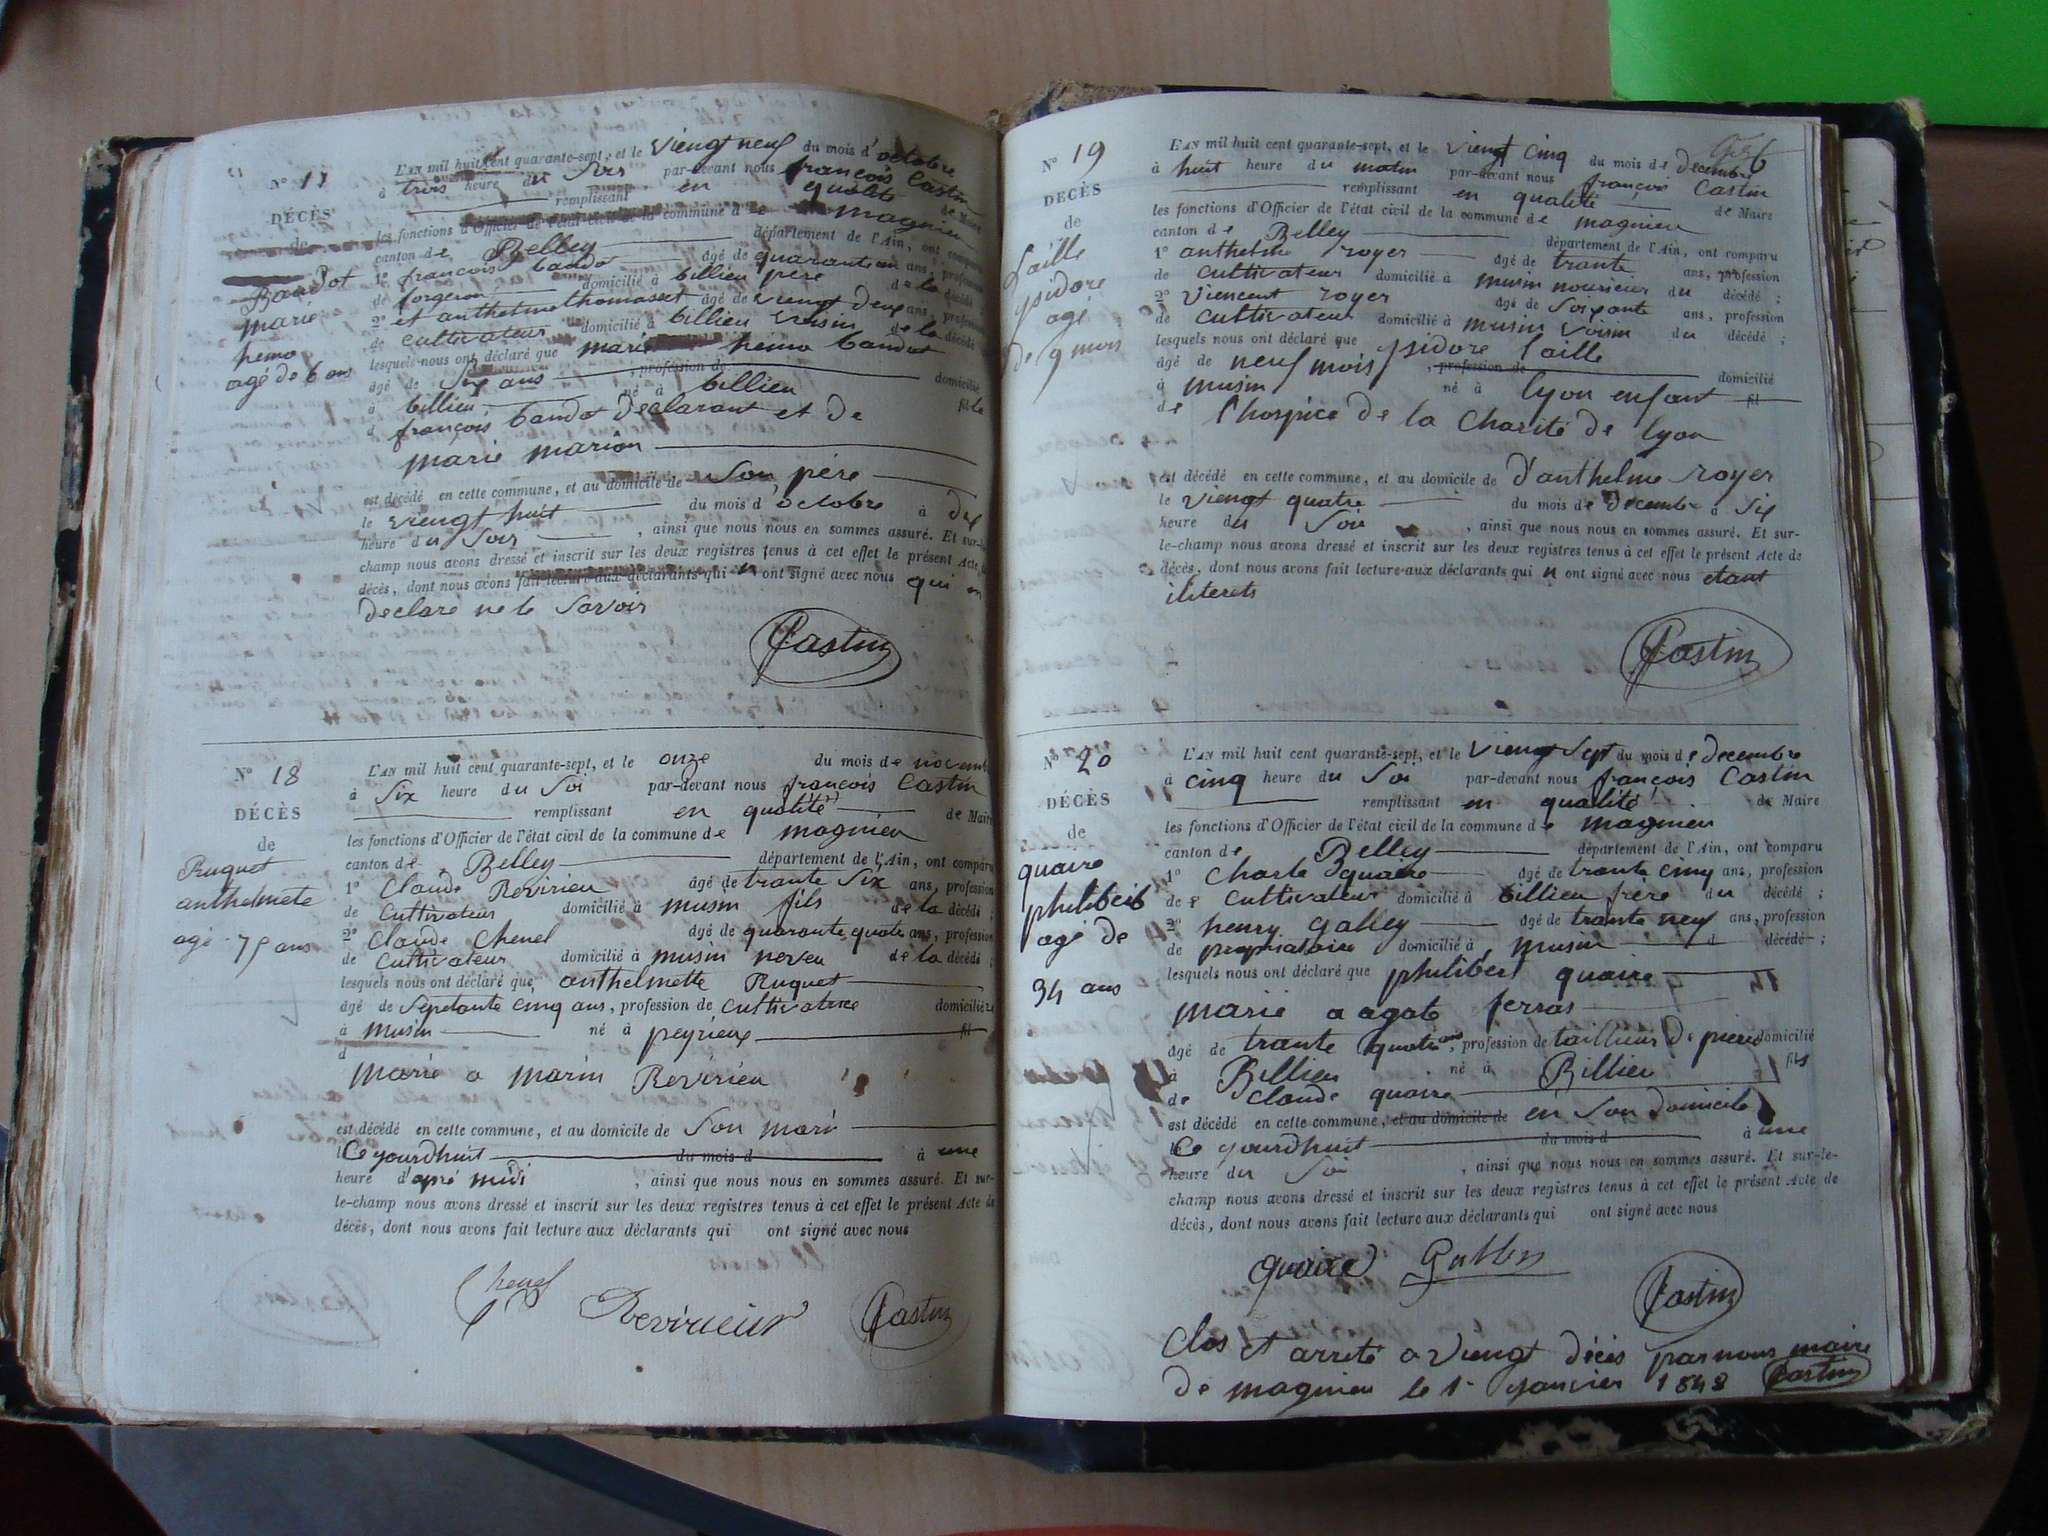 N° 17
DÉCÈS
de
Bandot
marie
hemo
agé de 6 ans
L'AN mil huit cent quarante-sept, et le viengt neuf du mois d'octobre
à trois heure du Soir par-devant nous françois Castin
remplissant en qualité de Maire
les fonctions d'Officier de l'état civil de la commune de magnieu
canton de Belley département de l'Ain, ont comparu
1° françois bandot âgé de quarante un ans, profession
de forgeron domicilié à billieu père de la décédé
2° et anthelme thomasset âgé de viengt deux ans, profession
de cultivateur domicilié à billieu voisin de la décédé
lesquels nous ont déclaré que marie hemo bandot
âgé de Six ans, profession de domicilié
à billieu, né à billieu fille
d françois bandot déclarant et de
marie marion
est décédé en cette commune, et au domicile de Son père
le viengt huit du mois d'octobre à dix
heure du Soir, ainsi que nous nous en sommes assuré. Et sur-le-
champ nous avons dressé et inscrit sur les deux registres tenus à cet effet le présent Acte de
décès, dont nous avons fait lecture aux déclarants qui n ont signé avec nous qui on
declare ne le Savoir
Castin
N° 18
DÉCÈS
de
Ruquet
anthelmete
agé 75 ans
L'AN mil huit cent quarante-sept, et le onze du mois de novembre
à Six heure du Soi par-devant nous françois Castin
remplissant en qualité de Maire
les fonctions d'Officier de l'état civil de la commune de magnieu
canton de Belley département de l'Ain, ont comparu
1° Claude Revirieu âgé de trante Six ans, profession
de Cultivateur domicilié à musin fils de la décédé ;
2° Claude Chenel âgé de quarante quatre ans, profession
de Cultivateur domicilié à musin neveu de la décédé ;
lesquels nous ont déclaré que anthelmette Ruquet
âgé de Septante cinq ans, profession de cultivatrice domicilié
à musin né à peyrieux fil
d
marié a marin Revirieu
est décédé en cette commune, et au domicile de Son mari
le Ce yourdhuit du mois d à une
heure d'apré midi, ainsi que nous nous en sommes assuré. Et sur-
le-champ nous avons dressé et inscrit sur les deux registres tenus à cet effet le présent Acte de
décès, dont nous avons fait lecture aux déclarants qui ont signé avec nous
Chenel Revirieur Castin
N° 19
DÉCÈS
de
Laille
ysidore
agé
de 9 mois
L'AN mil huit cent quarante-sept, et le viengt cinq du mois de decembre
à huit heure du matin par-devant nous françois Castin
remplissant en qualité de Maire
les fonctions d'Officier de l'état civil de la commune de magnieu
canton de Belley département de l'Ain, ont comparu
1° anthelme royer âgé de trante ans, profession
de cultivateur domicilié à musin nouricier du décédé ;
2° Viencent royer âgé de Soixante ans, profession
de Cultivateur domicilié à musin Voisin du décédé ;
lesquels nous ont déclaré que ysidore Laille
âgé de neuf mois, profession de domicilié
à musin né à lyon enfant fil
de l'hospice de la Charité de lyon
est décédé en cette commune, et au domicile de D'anthelme royer
le viengt quatre du mois de decembre à Six
heure du Soir, ainsi que nous nous en sommes assuré. Et sur-
le-champ nous avons dressé et inscrit sur les deux registres tenus à cet effet le présent Acte de
décès, dont nous avons fait lecture aux déclarants qui n ont signé avec nous etant
iliterets
Castin
N° 20
DÉCÈS
de
quaire
philibert
agé de
34 ans
L'AN mil huit cent quarante-sept, et le viengt Sept du mois de decembre
à cinq heure du Soi par-devant nous françois Castin
remplissant en qualité de Maire
les fonctions d'Officier de l'état civil de la commune de magnieu
canton de Belley département de l'Ain, ont comparu
1° Charle quaire âgé de trante cinq ans, profession
de Cultivateur domicilié à billieu frère du décédé ;
2° henry galley âgé de trante neuf ans, profession
de propriataire domicilié à musin d décédé ;
lesquels nous ont déclaré que philibert quaire
marié a agate ferras
âgé de trante quatre ans, profession de tailleur de pierre domicilié
à Billieu né à Billieu fils
de Claude quaire
est décédé en cette commune, et au domicile de en Son domicile
le Ce yourdhuit du mois d à une
heure du Soi, ainsi que nous nous en sommes assuré. Et sur-le-
champ nous avons dressé et inscrit sur les deux registres tenus à cet effet le présent Acte de
décès, dont nous avons fait lecture aux déclarants qui ont signé avec nous
quaire Galley
Castin
Clos et arreté a viengt décès par nous maire
de magnieu le 1r yanvier 1848 Castin